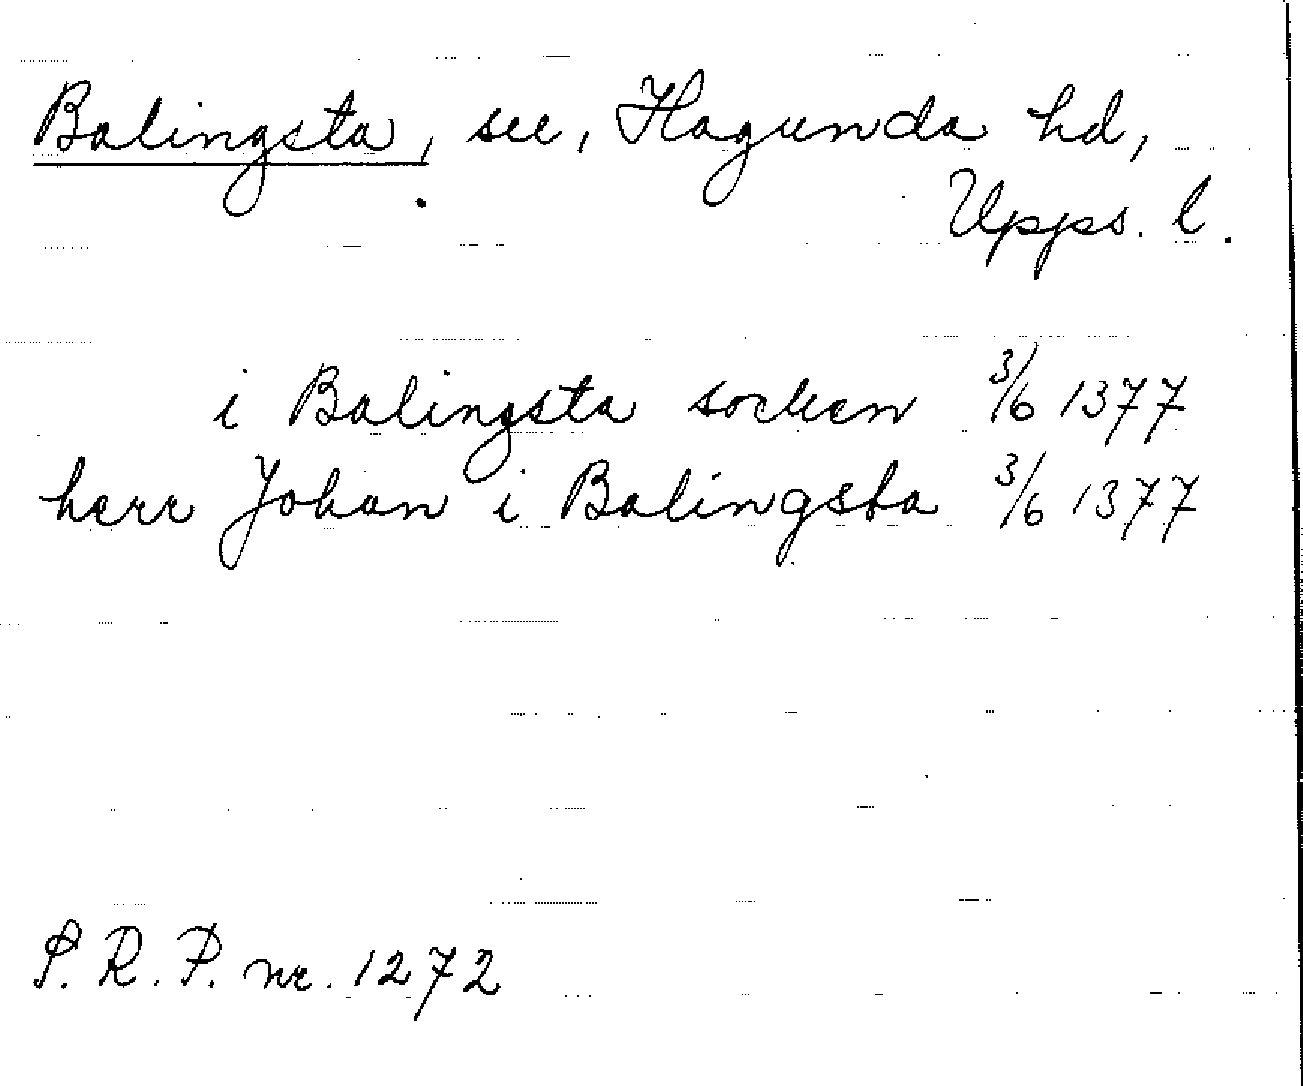 Balingsta, sn, Hagunda hd,
Upps. l.
i Balingsta socken 3/6 1377
herr Johan i Balingsta 3/6 1377
S. R. P. nr. 1272